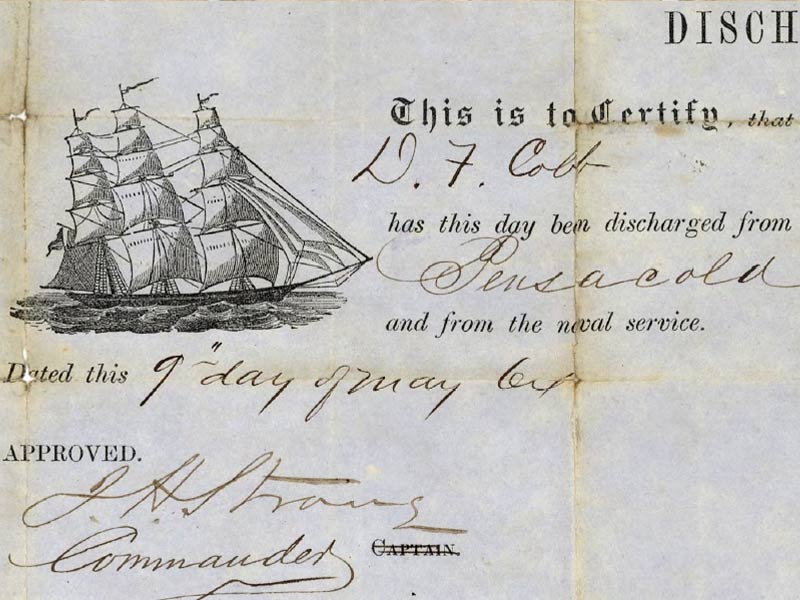 DISCH
This is to Certify, that
D. F. Cobb
has this day been discharged from
Pensacola
and from the naval service.
Dated this 9" day of may
APPROVED.
J. H. Strong
Commander CAPTAIN.